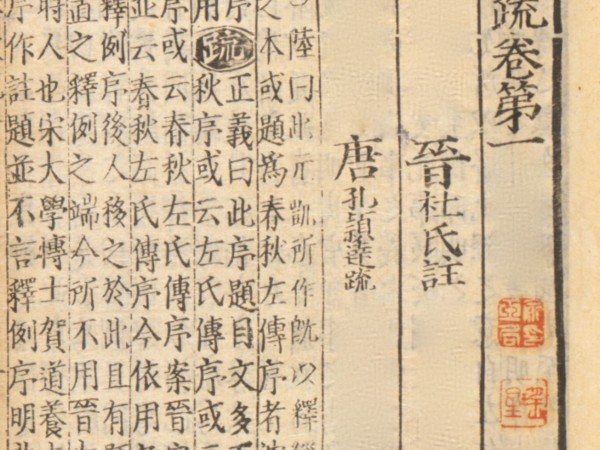 疏卷第一
晉杜氏註
唐孔穎達疏
陸曰此元凱所作旣以釋經
之本或題爲春秋左傳序者
序疏正義曰此序題目文多不
用秋序或云左氏傳序或云
序或云春秋左氏傳序案晉宋
並云春秋左氏傳序今依用
釋例序後人移之於此且有題
直之釋例之端今所不用晉
時人也宋大學博士賀道養
序作註題並不言釋例序明